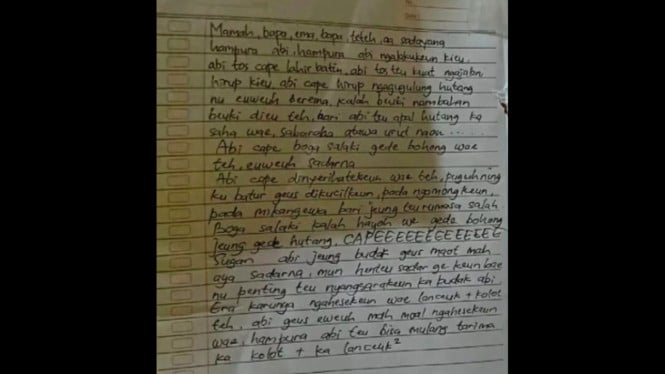 Mamah, bapa, ema, bapa, teteh, aa sadayana
hampura abi, hampura abi ngalakukeun kieu,
abi tos cape lahir batin, abi tos teu kuat ngajalani
hirup kieu, abi cape hirup ngagugulung hutang
nu euweuh berena, kalah beuki nambahan
beuki dieu teh, bari abi teu apal hutang ka
saha wae, sabaraha atawa urut naon .....
Abi cape boga salaki gede bohong wae
teh, euweuh sadarna
Abi cape dinyerihatekeun wae teh, puguh ning
ku batur geus dikucilkeun, pada ngomongkeun,
pada mikangewa bari jeung teu rumasa salah
Boga salaki kalah hayoh we gede bohong
jeung gede hutang, CAPEEEEEEEEEEEEE
Sugan abi jeung budak geus maot mah
aya sadarna, mun henteu sadar ge keun bae
nu penting teu nyangsarakeun ka budak abi,
Era karunya ngahesekeun wae lanceuk + kolot
teh, abi geus euweuh mah moal ngahesekeun
wae, hampura abi teu bisa mulang tarima
ka kolot + ka lanceuk²